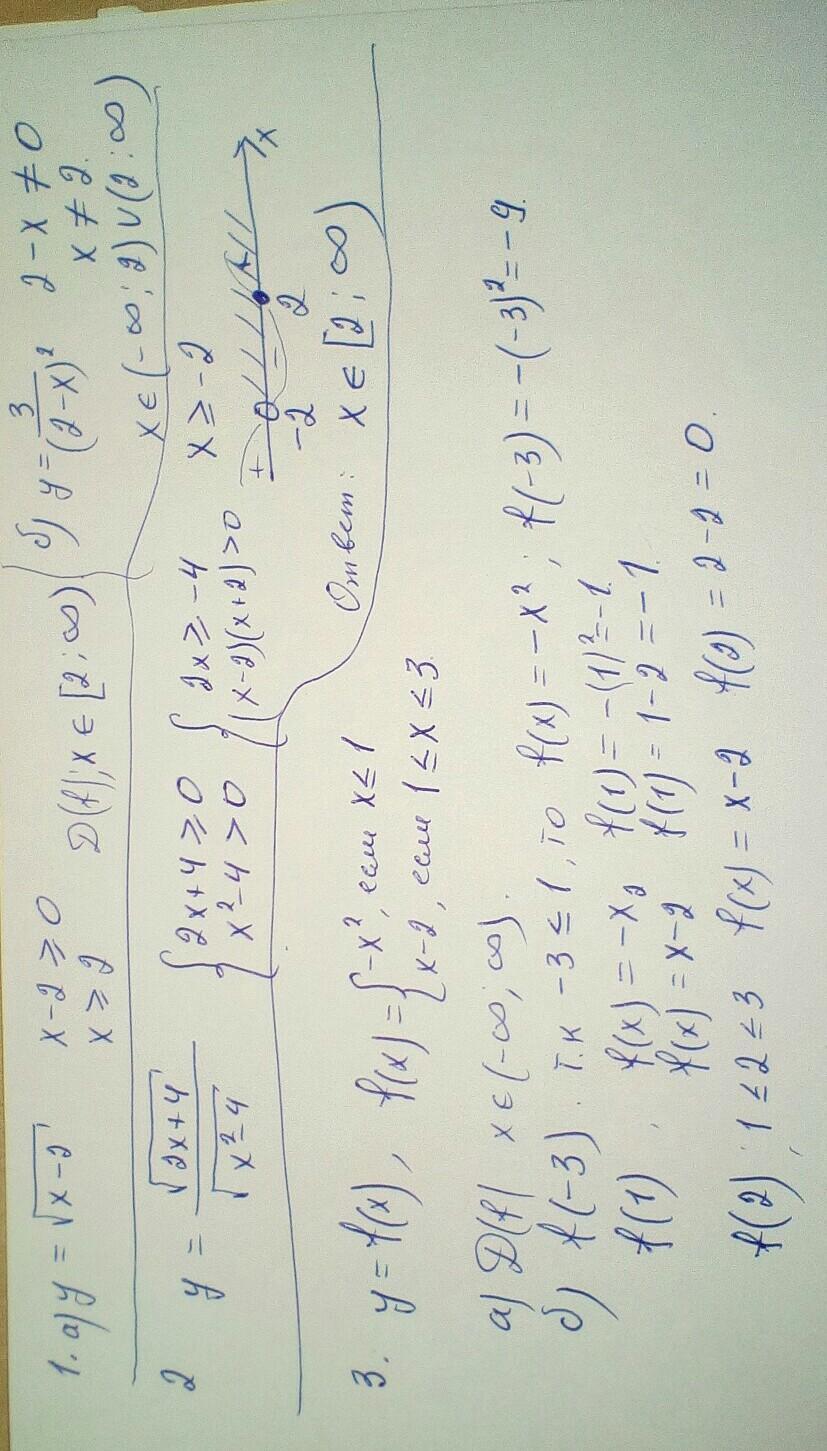 1. а) y = √x-2   x-2 ⩾ 0   D(f); x ∈ [2; ∞)
x ⩾ 2
б) y = 3/(2-x)²   2-x ≠ 0
x ≠ 2.
x ∈ (-∞; 2) ∪ (2; ∞)
2   y = √2x+4 / √x²-4   { 2x+4 ⩾ 0   { 2x ⩾ -4   x ⩾ -2
x²-4 > 0   (x-2)(x+2) > 0
+ - +
-2   2   x
Ответ: x ∈ [2; ∞)
3. y = f(x),   f(x) = { -x², если x ≤ 1
x-2, если 1 ≤ x ≤ 3.
а) D(f)   x ∈ (-∞; ∞).
б) f(-3). т.к -3 ≤ 1, то f(x) = -x²; f(-3) = -(-3)² = -9.
f(1).   f(x) = -x²   f(1) = -(1)² = -1.
f(x) = x-2   f(1) = 1-2 = -1.
f(2); 1 ≤ 2 ≤ 3   f(x) = x-2   f(2) = 2-2 = 0.